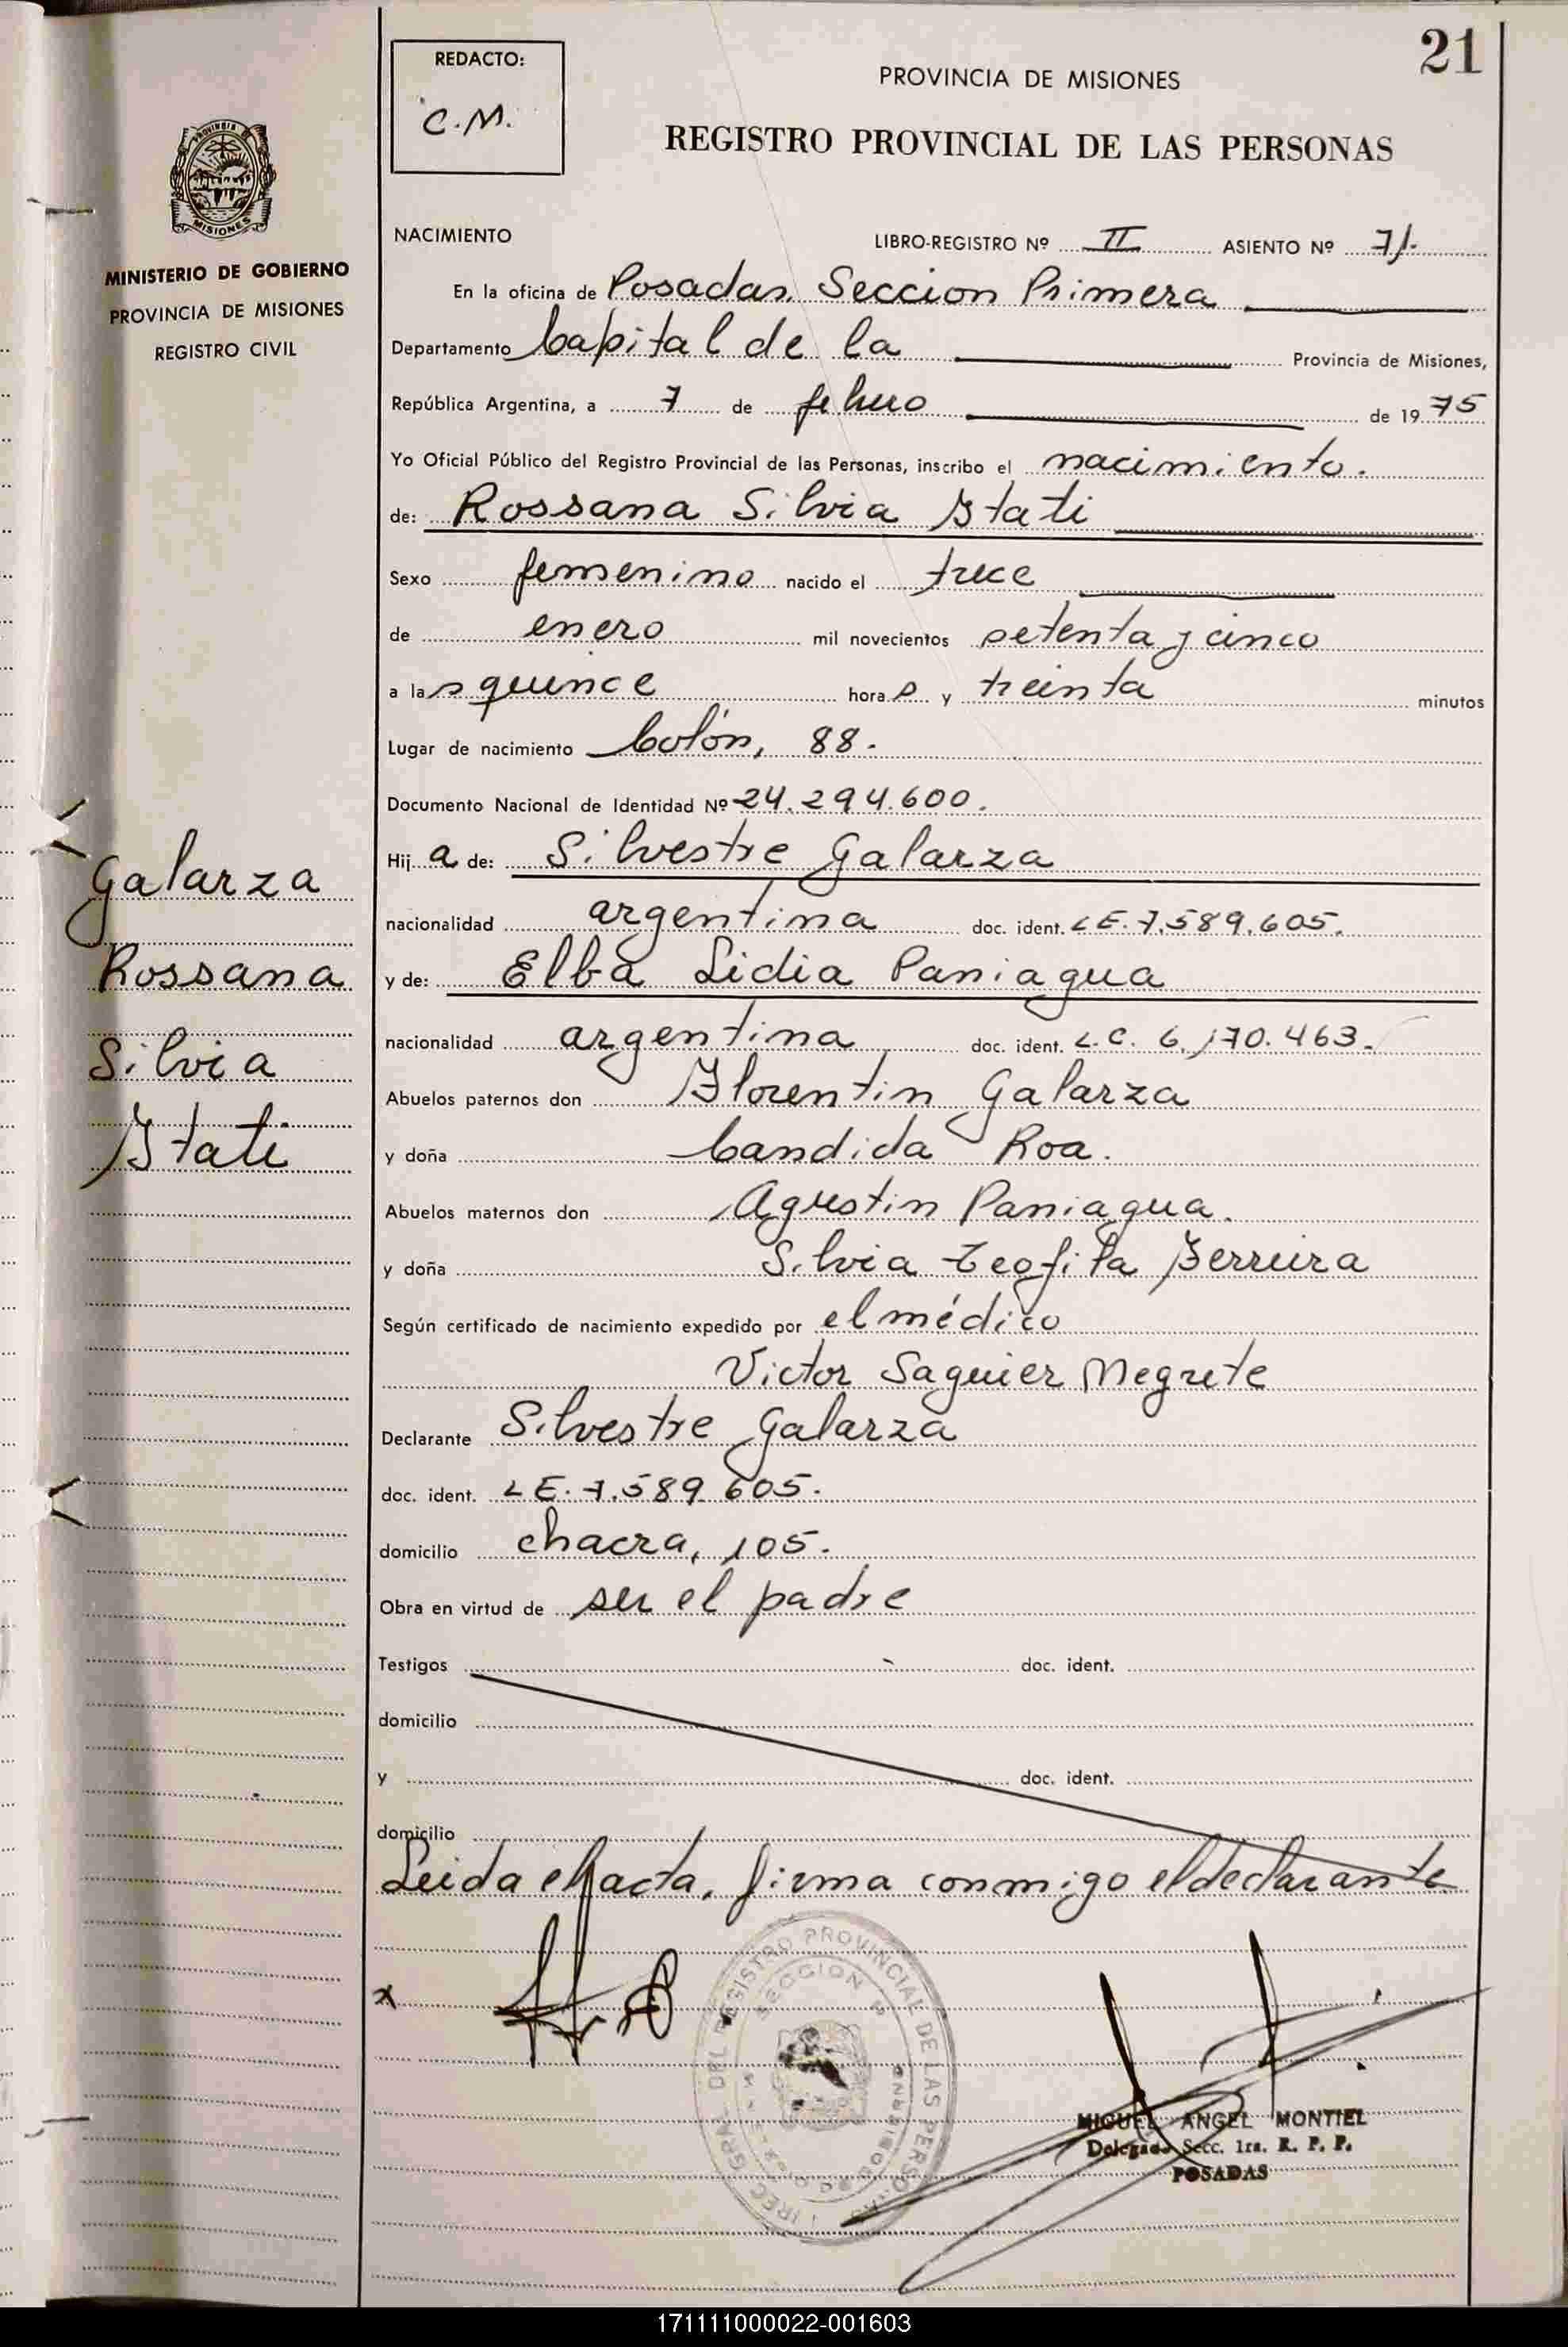 21
REDACTO:
C.M.
PROVINCIA DE MISIONES
REGISTRO PROVINCIAL DE LAS PERSONAS
PROVINCIA DE
MISIONES
MINISTERIO DE GOBIERNO
PROVINCIA DE MISIONES
REGISTRO CIVIL
NACIMIENTO LIBRO-REGISTRO Nº II ASIENTO Nº 71.
En la oficina de Posadas, Seccion Primera
Departamento Capital de la Provincia de Misiones,
República Argentina, a 7 de febrero de 1975
Yo Oficial Público del Registro Provincial de las Personas, inscribo el nacimiento.
de: Rossana Silvia Itati
Sexo femenino nacido el trece
de enero mil novecientos setenta y cinco
a las quince horas y treinta minutos
Lugar de nacimiento Colón, 88.
Documento Nacional de Identidad Nº 24.294.600.
Hija de: Silvestre Galarza
nacionalidad argentina doc. ident. L E. 7.589.605.
y de: Elba Lidia Paniagua
nacionalidad argentina doc. ident. L. C. 6.170.463.
Abuelos paternos don Florentin Galarza
y doña Candida Roa.
Abuelos maternos don Agustin Paniagua.
y doña Silvia Teofila Ferreira
Según certificado de nacimiento expedido por el médico
Victor Saguier Negrete
Declarante Silvestre Galarza
doc. ident. L E. 7.589.605.
domicilio chacra, 105.
Obra en virtud de ser el padre
Testigos doc. ident.
domicilio
y doc. ident.
domicilio
Leida el acta, firma conmigo el declarante
x
Galarza
Rossana
Silvia
Itati
REGISTRO PROVINCIAL DE LAS PERSONAS
SECCION
MIGUEL ANGEL MONTIEL
Delegado Secc. 1ra. R. P. P.
POSADAS
171111000022-001603